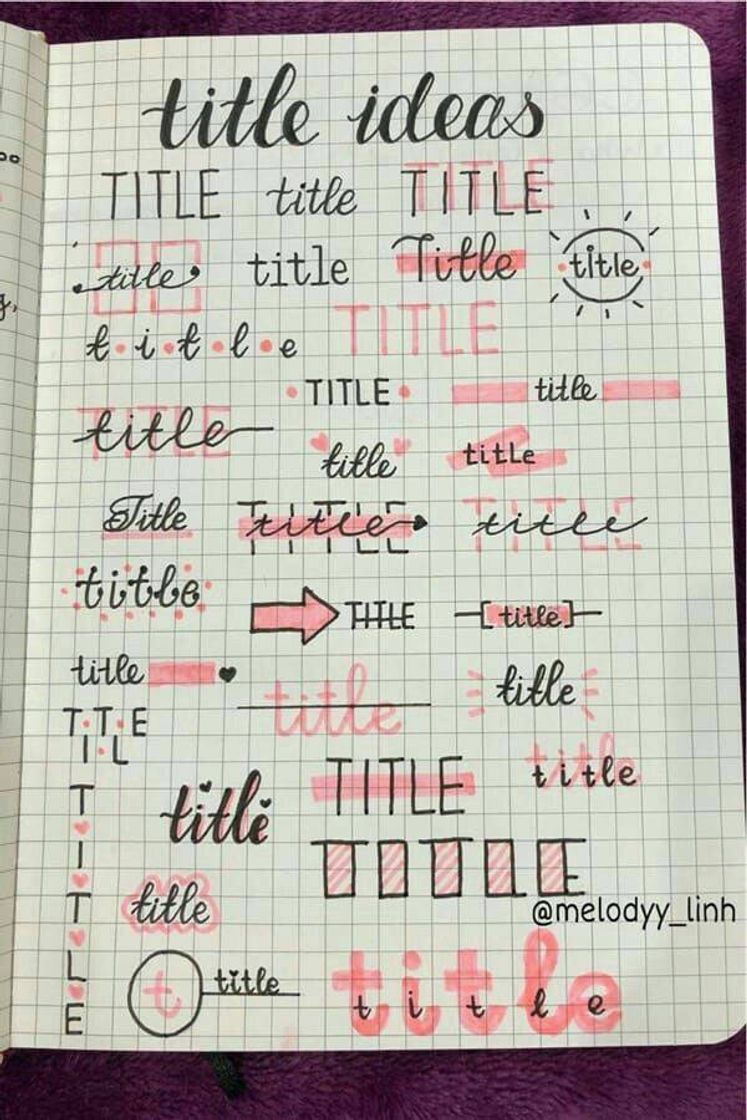 title ideas
TITLE title TITLE
title title Title title
t • i • t • l • e TITLE
• TITLE • title
title
title title
Title title title
title
TITLE [title]
title title title
TITLE
TITLE title
title
TITLE
TITLE
title
@melodyy_linh
t title
title